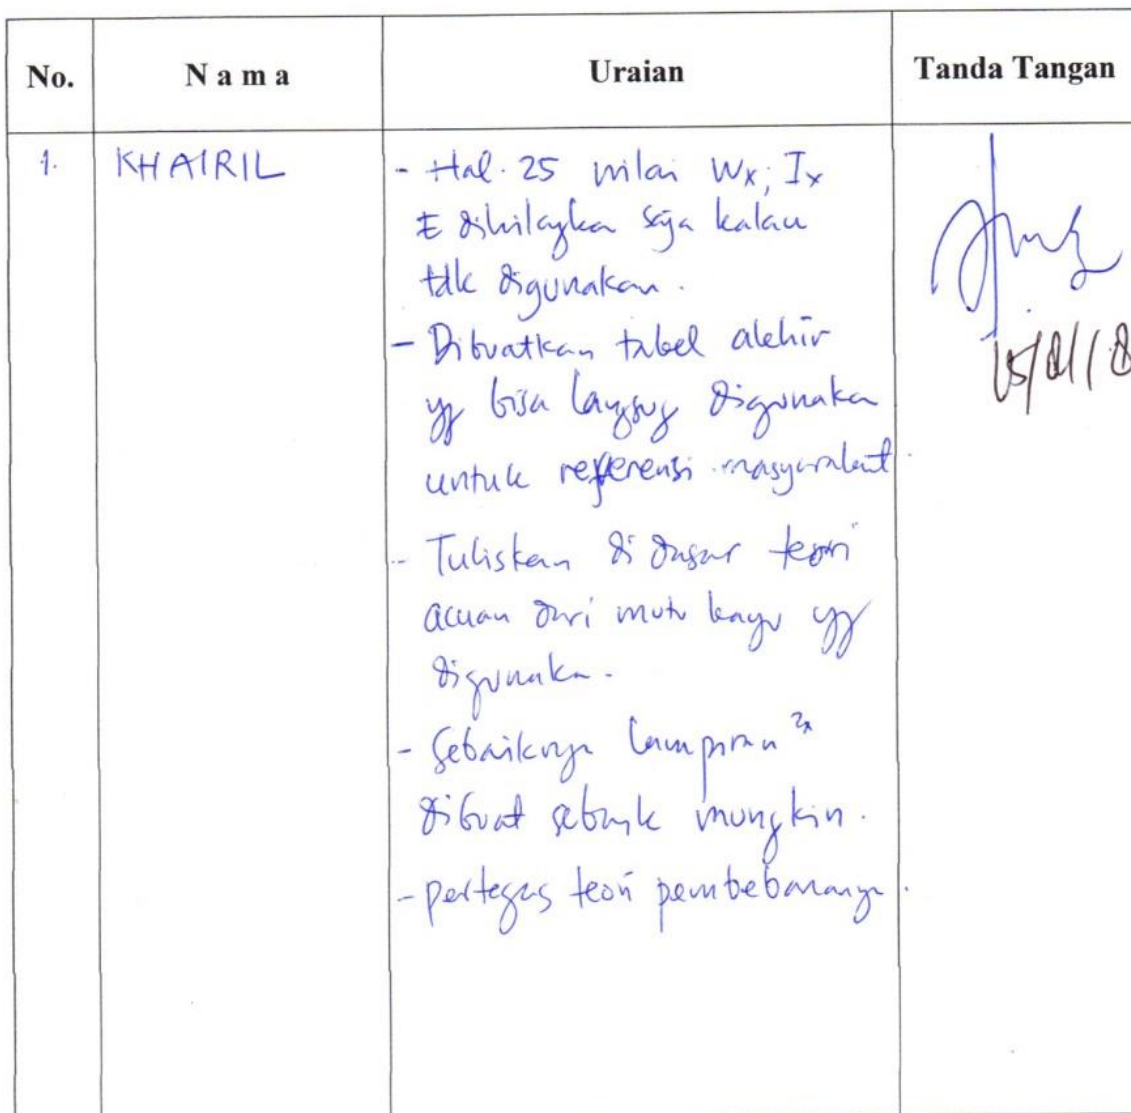 No. N a m a Uraian Tanda Tangan
1. KHAIRIL - Hal. 25 nilai Wx; Ix
dihilagka saja kalau
tdk digunakan.
- Dibuatkan tabel akhir
yg bisa langsug digunaka
untuk referensi masyarakat
- Tuliskan di dasar teori
acuan dari mutu kayu yg
digunaka.
- Sebaiknya lampiran 2x
dibuat sebaik mungkin.
- pertegas teori pembebananya.
15/01/18